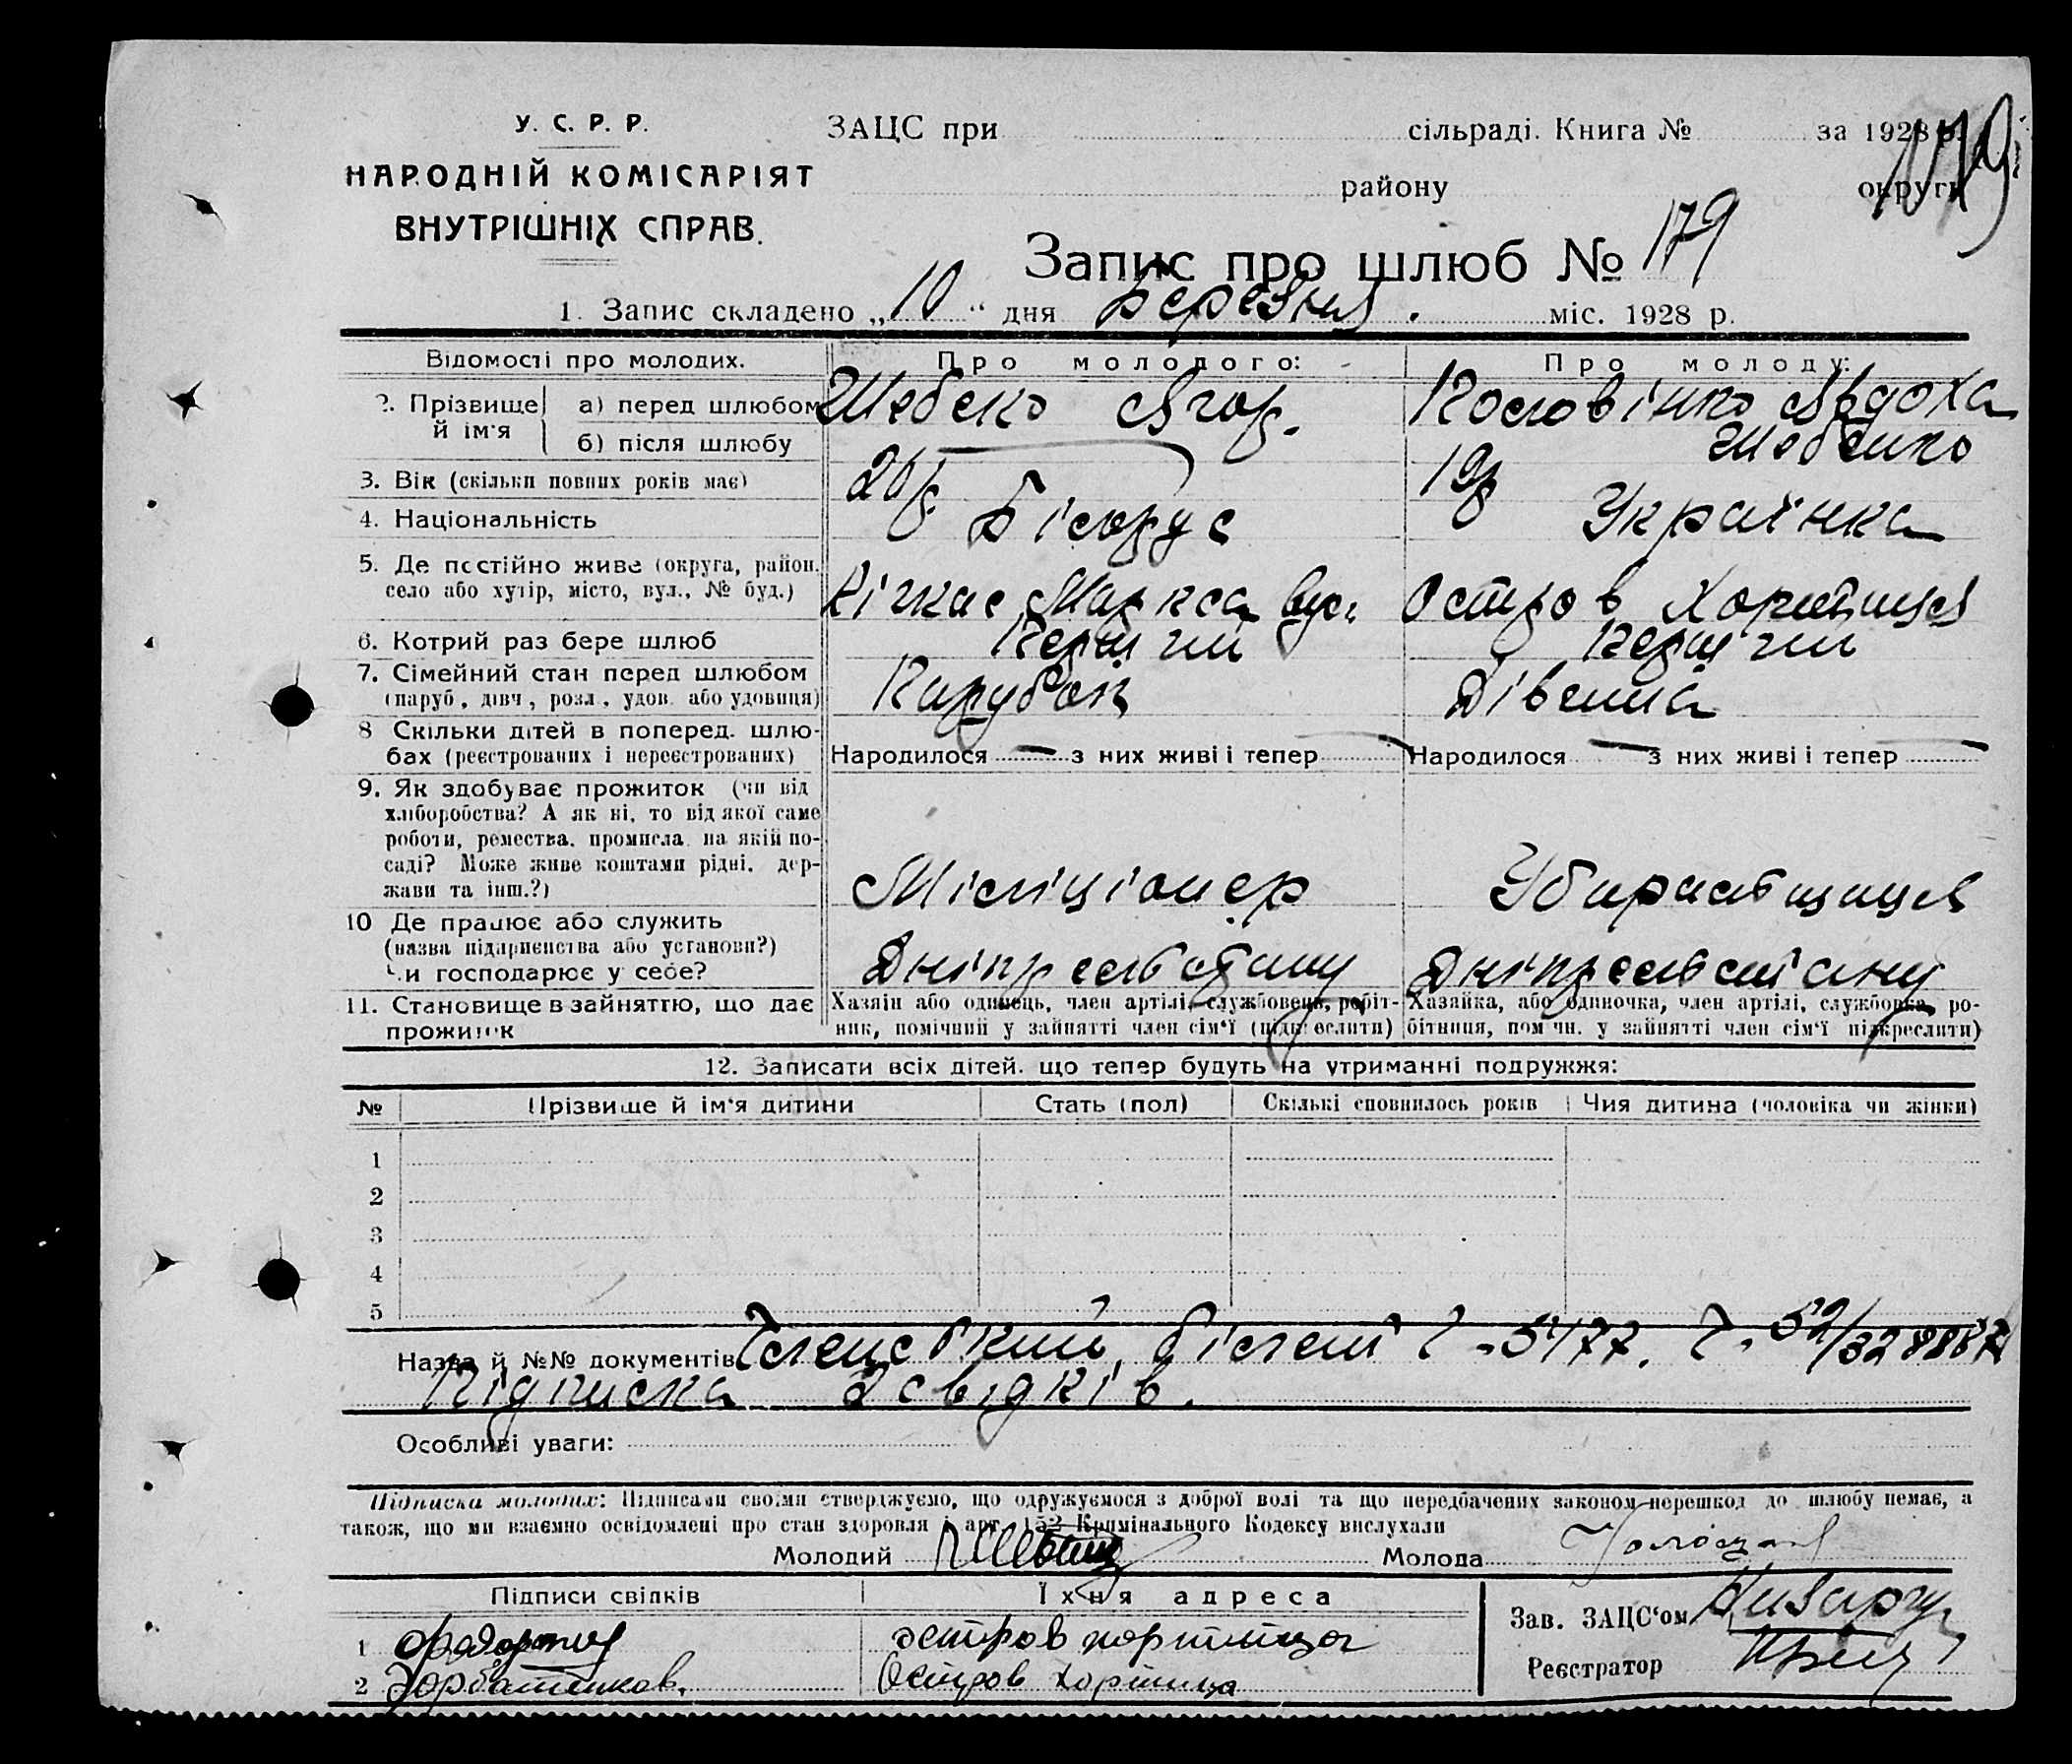 У. С. Р. Р.
НАРОДНІЙ КОМІСАРІЯТ
ВНУТРІШНІХ СПРАВ.
ЗАЦС при сільраді. Книга № за 1928 р.
району округи
179
Запис про шлюб № 179
1. Запис складено „10“ дня Березня. міс. 1928 р.
Відомості про молодих. Про молодого: Про молоду:
2. Прізвище й ім'я а) перед шлюбом Шебеко Ягор.
б) після шлюбу Шебеко
3. Вік (скільки повних років має) 26 19
4. Національність Білорус Українка
5. Де постійно живе (округа, район, село або хутір, місто, вул., № буд.) Кічкас Маркса вул. Остров Хортиця
6. Котрий раз бере шлюб Перший Перший
7. Сімейний стан перед шлюбом (паруб., дівч., розл., удов. або удовиця) Парубок Дівчина
8 Скільки дітей в поперед. шлюбах (реєстрованих і нереєстрованих) Народилося — з них живі і тепер — Народилося — з них живі і тепер —
9. Як здобуває прожиток (чи від хліборобства? А як ні, то від якої саме роботи, ремества, промисла, на якій посаді? Може живе коштами рідні, держави та інш.?) Міліціонер Убиральщиця
10 Де працює або служить (назва підприємства або установи?) Чи господарює у себе? Дніпрельстану Дніпрельстану
11. Становище в зайняттю, що дає прожиток Хазяїн або одинець, член артілі, службовець, робітник, помічний у зайнятті член сім'ї (підкреслити) Хазяйка, або одиночка, член артілі, службовка, робітниця, помічн. у зайнятті член сім'ї підкреслити)
12. Записати всіх дітей, що тепер будуть на утриманні подружжя:
№ Прізвище й ім'я дитини Стать (пол) Скількі сповнилось років Чия дитина (чоловіка чи жінки)
1
2
3
4
5
Назва й №№ документів Членський білет № 5477.
Підписка 2 свідків.
Особливі уваги:
Підписка молодих: Підписами своїми стверджуємо, що одружуємося з доброї волі та що передбачених законом перешкод до шлюбу немає, а
також, що ми взаємно освідомлені про стан здоровля і арт. 152 Кримінального Кодексу вислухали
Молодий Молода
Підписи свідків Їхня адреса Зав. ЗАЦС'ом
1 остров хортица
2 Горбатиков. Остров Хортица
Реєстратор